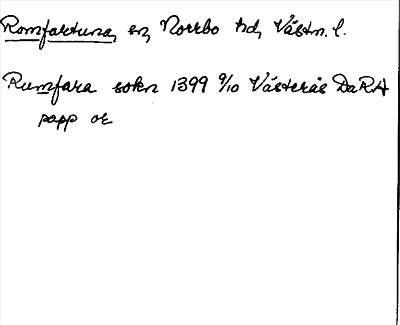 Romfartuna, sn, Norrbo hd, Västm. l.
Rumfara sokn 1399 9/10 Västerås DaRA
papp or